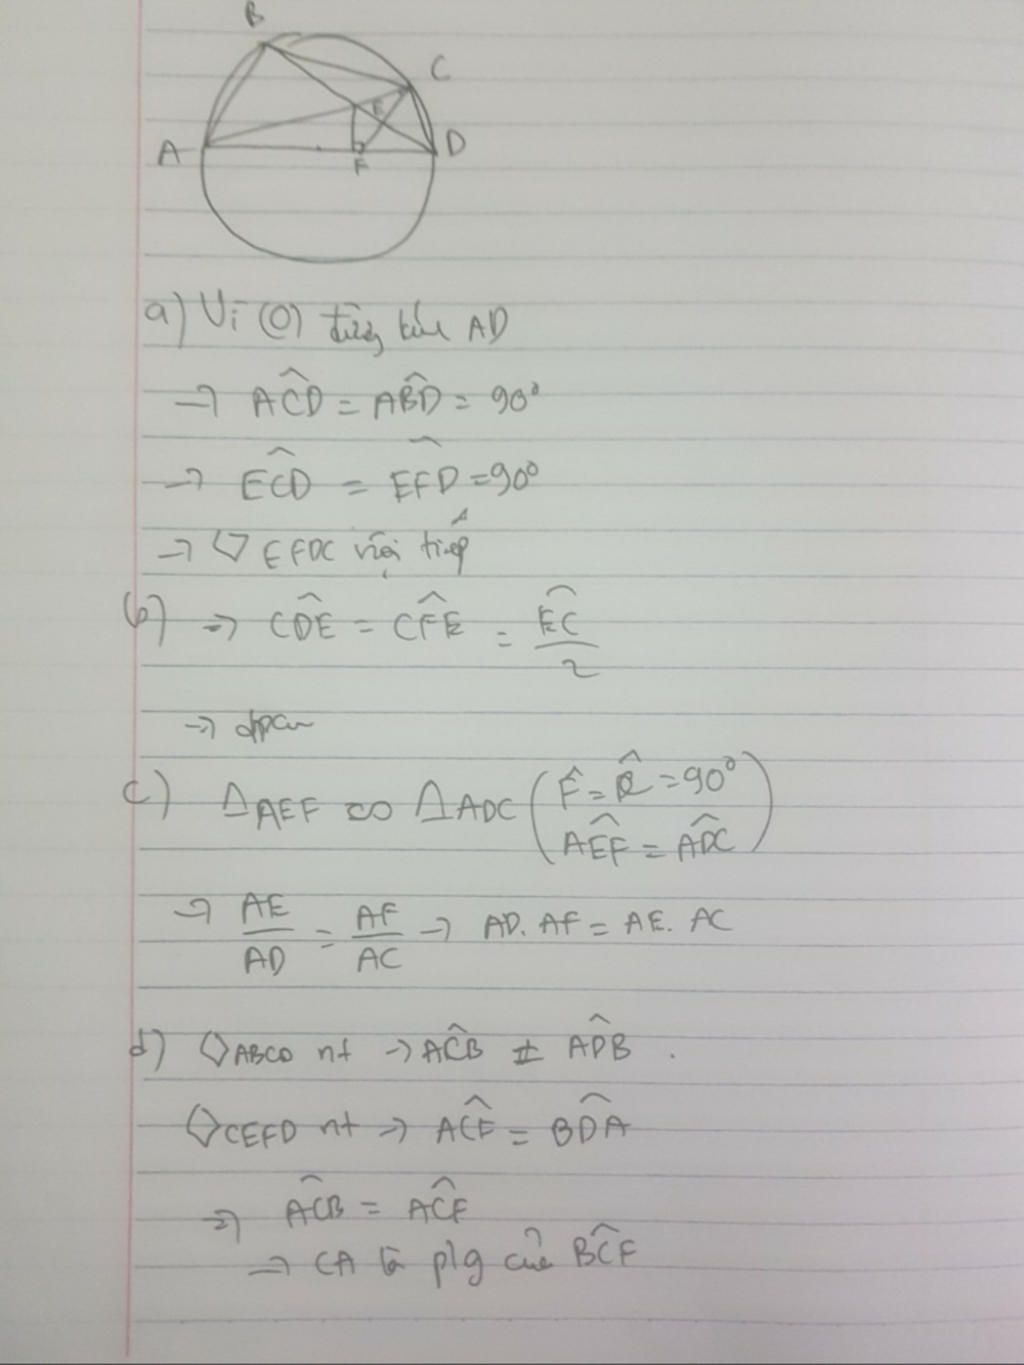 B
C
E
A
D
F
a) Vì (O) đường kính AD
→ ACD = ABD = 90°
→ ECD = EFD = 90°
→ EFDC nội tiếp
b) → CDE = CFE = EC/2
→ đpcm
c) ΔAEF ∽ ΔADC (F̂ = Ĉ = 90°
AEF = ADC)
→ AE/AD = AF/AC → AD. AF = AE. AC
d) ◇ABCD nt → ACB = ADB .
◇CEFD nt → ACF = BDA
⇒ ACB = ACF
→ CA là p/g của BCF